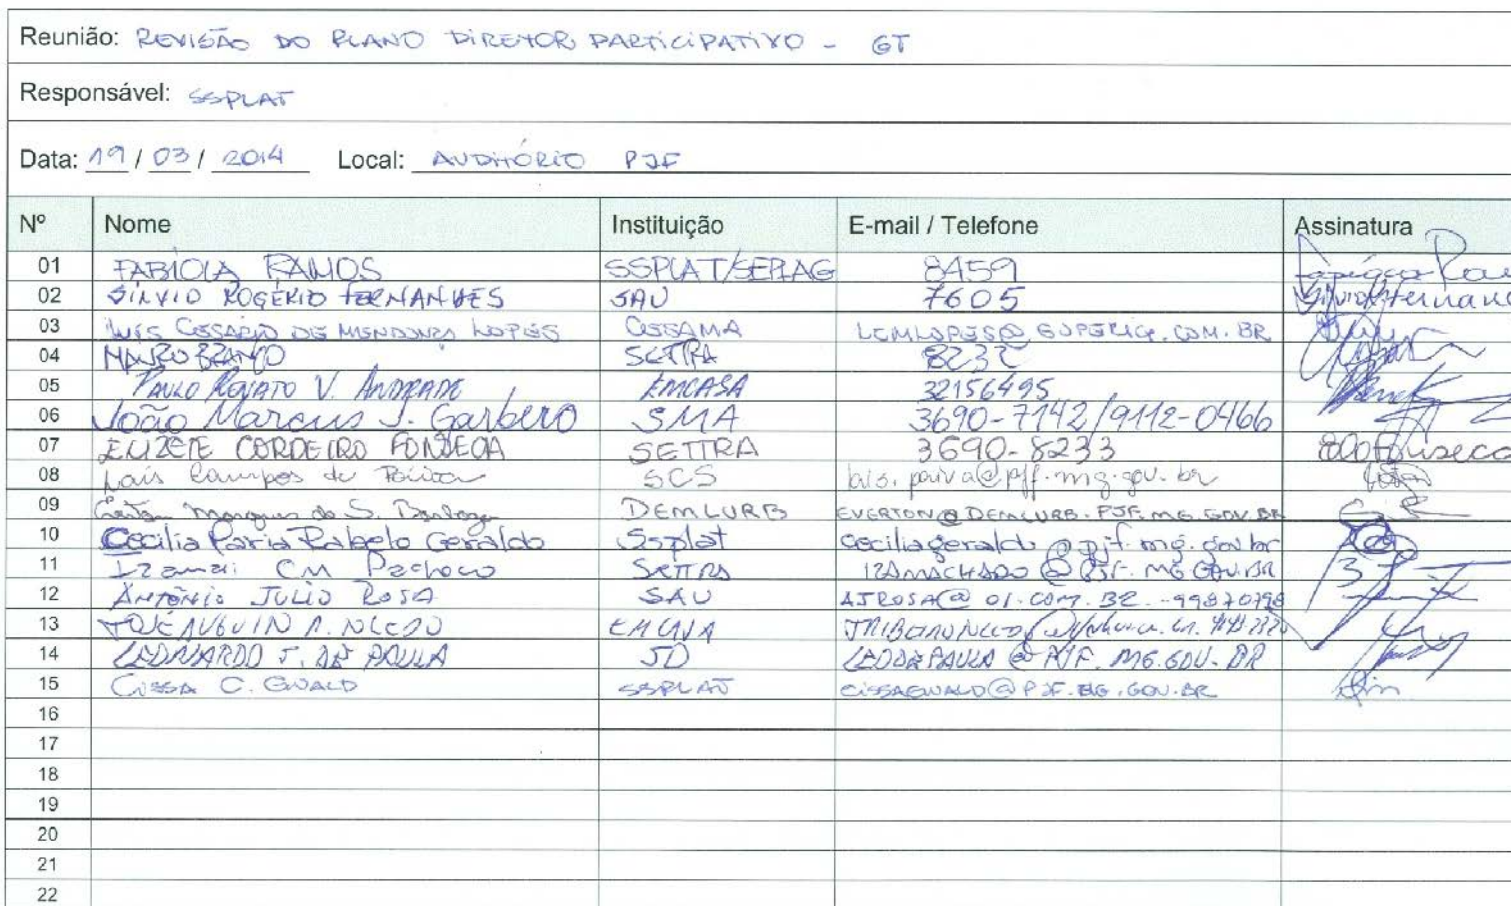 Reunião: REVISÃO DO PLANO DIRETOR PARTICIPATIVO - GT
Responsável: SSPLAT
Data: 19 / 03 / 2014 Local: AUDITÓRIO PJF
Nº Nome Instituição E-mail / Telefone Assinatura
01 FABÍOLA RAMOS SSPLAT/SEPLAG 8459
02 SILVIO ROGÉRIO FERNANDES SAU 7605
03 LUÍS CESÁRIO DE MENDONÇA LOPES CESAMA
04 MAURO BRANCO SETTRA 8232
05 PAULO RENATO V. ANDRADE EMCASA 32156495
06 João Marcus J. Garbero SMA 3690-7142/9112-0466
07 ELIZETE CORDEIRO FONSECA SETTRA 3690-8233
08 Laís Campos de Paiva SCS lais.paiva@pjf.mg.gov.br
09 Marques de S. DEMLURB EVERTON@DEMLURB.PJF.MG.GOV.BR
10 Cecilia Faria Rabelo Geraldo Ssplat ceciliageraldo@pjf.mg.gov.br
11 CM Pacheco SETTRA IZAMACHADO@PJF.MG.GOV.BR
12 ANTÔNIO JULIO ROSA SAU
13
14 LEONARDO J. DE PAULA JD LEODEPAULA@PJF.MG.GOV.BR
15 CISSA C. EWALD SSPLAT CISSAEWALD@PJF.MG.GOV.BR
16
17
18
19
20
21
22